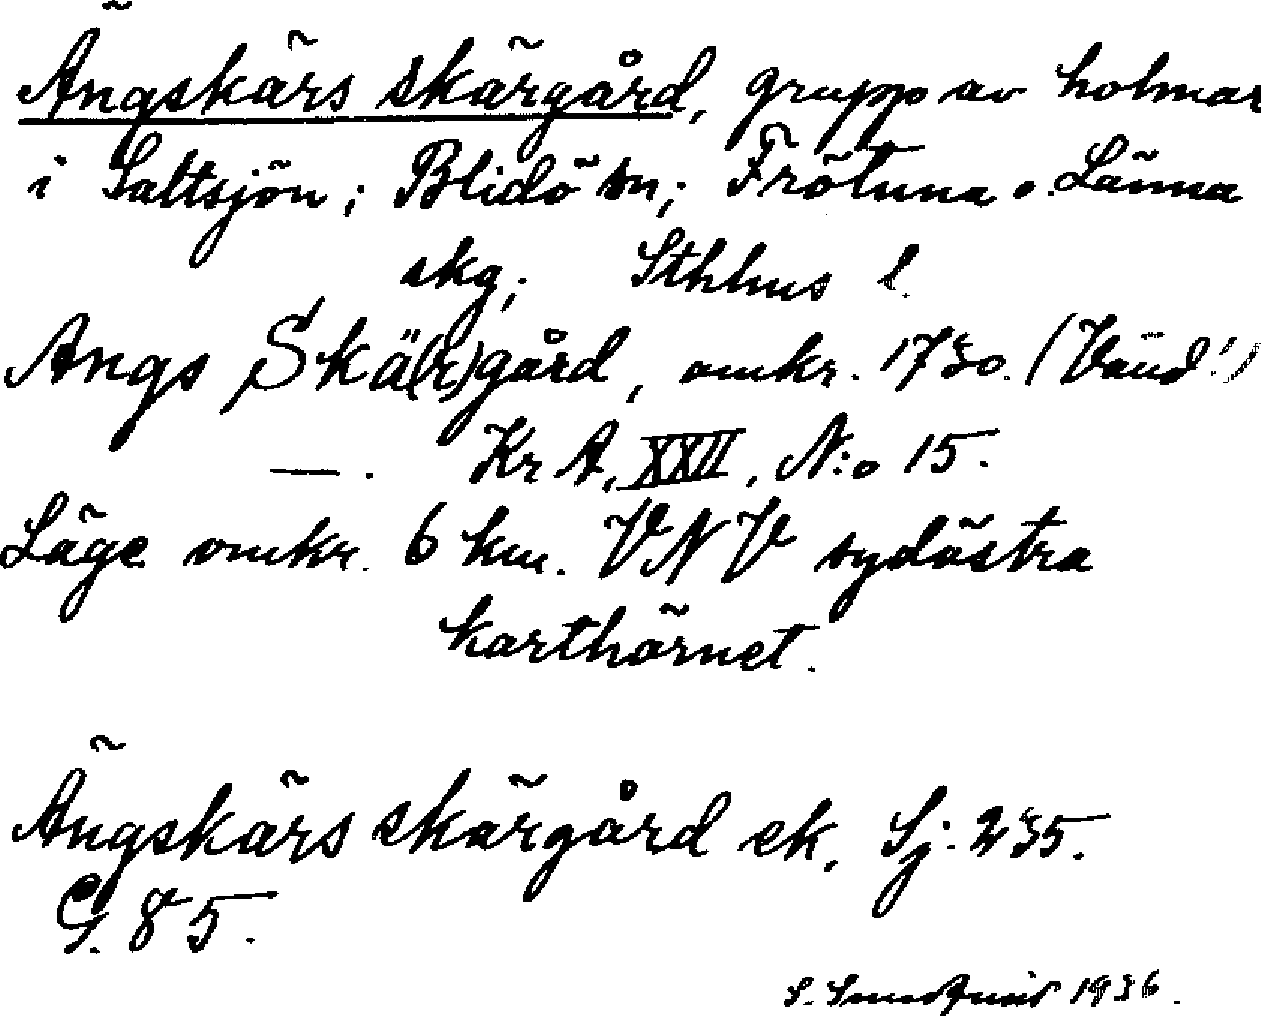 Ängskärs skärgård, grupp av holmar
i Saltsjön; Blidö sn; Frötuna o. Länna
skg; Sthlms l.
Angs Skä(r)gård, omkr. 1730. (Vänd!)
—. Kr A, XXII, N:o 15.
Läge omkr. 6 km. VNV sydöstra
karthörnet.
Ängskärs skärgård ek. Sj: 235.
G. 85.
S. 1936.